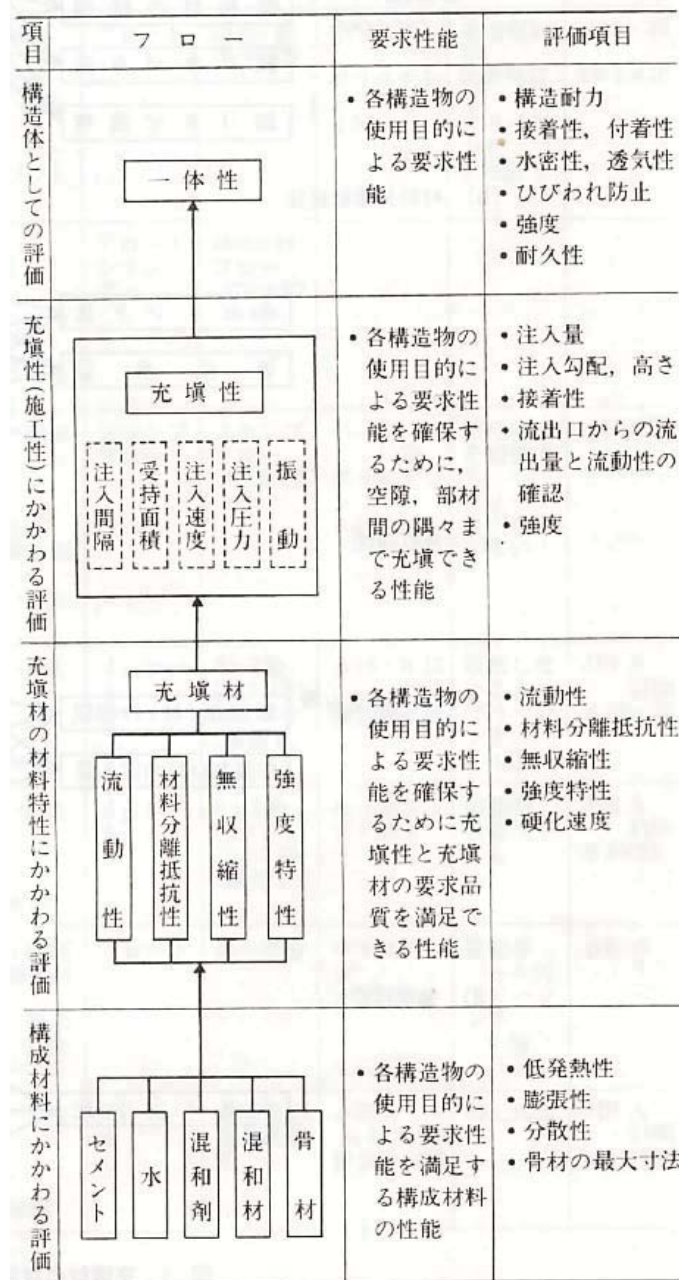 項目
フロー
要求性能
評価項目
構造体としての評価
一体性
・各構造物の
使用目的に
よる要求性
能
・構造耐力
・接着性，付着性
・水密性，透気性
・ひびわれ防止
・強度
・耐久性
充塡性(施工性)にかかわる評価
充塡性
注入間隔
受持面積
注入速度
注入圧力
振動
・各構造物の
使用目的に
よる要求性
能を確保す
るために，
空隙，部材
間の隅々ま
で充塡でき
る性能
・注入量
・注入勾配，高さ
・接着性
・流出口からの流
出量と流動性の
確認
・強度
充塡材の材料特性にかかわる評価
充塡材
流動性
材料分離抵抗性
無収縮性
強度特性
・各構造物の
使用目的に
よる要求性
能を確保す
るために充
塡性と充塡
材の要求品
質を満足で
きる性能
・流動性
・材料分離抵抗性
・無収縮性
・強度特性
・硬化速度
構成材料にかかわる評価
セメント
水
混和剤
混和材
骨材
・各構造物の
使用目的に
よる要求性
能を満足す
る構成材料
の性能
・低発熱性
・膨張性
・分散性
・骨材の最大寸法